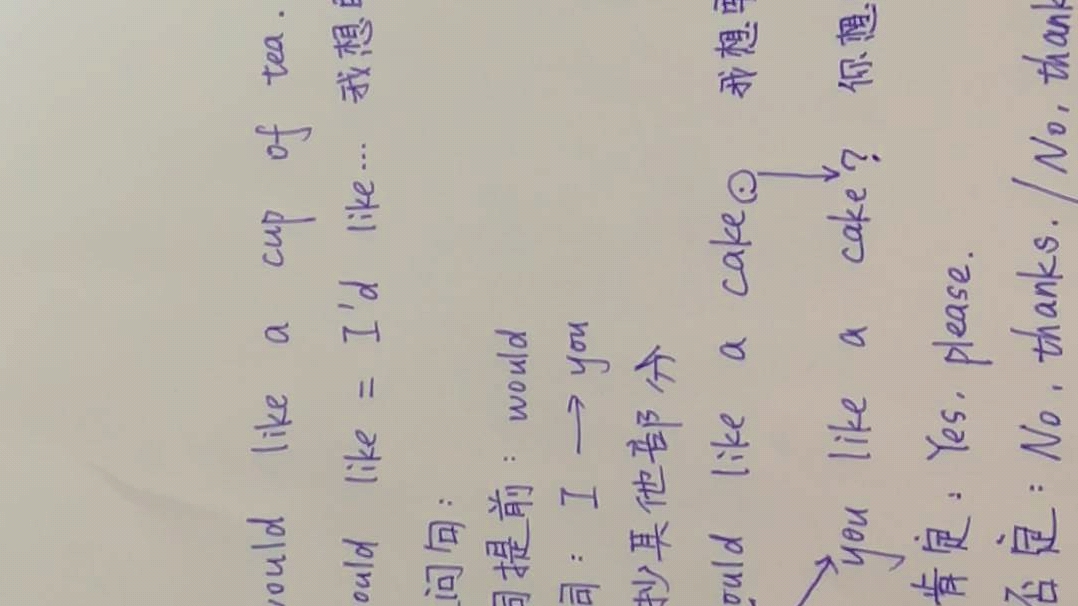 would like a cup of tea.
ould like = I'd like... 我想
问句:
词提前: would
词: I → you
抄其他部分
ould like a cake. 我想要
you like a cake? 你想
肯定: Yes, please.
否定: No, thanks. / No, thank